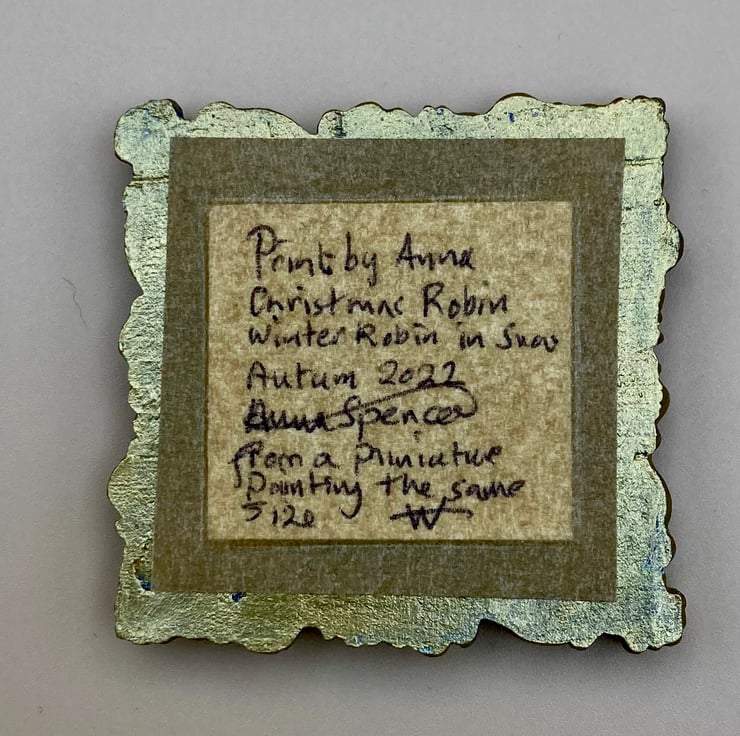 Print by Anna
Christmas Robin
Winter Robin in Snow
Autum 2022
Anna Spencer
from a miniature
painting the same
size